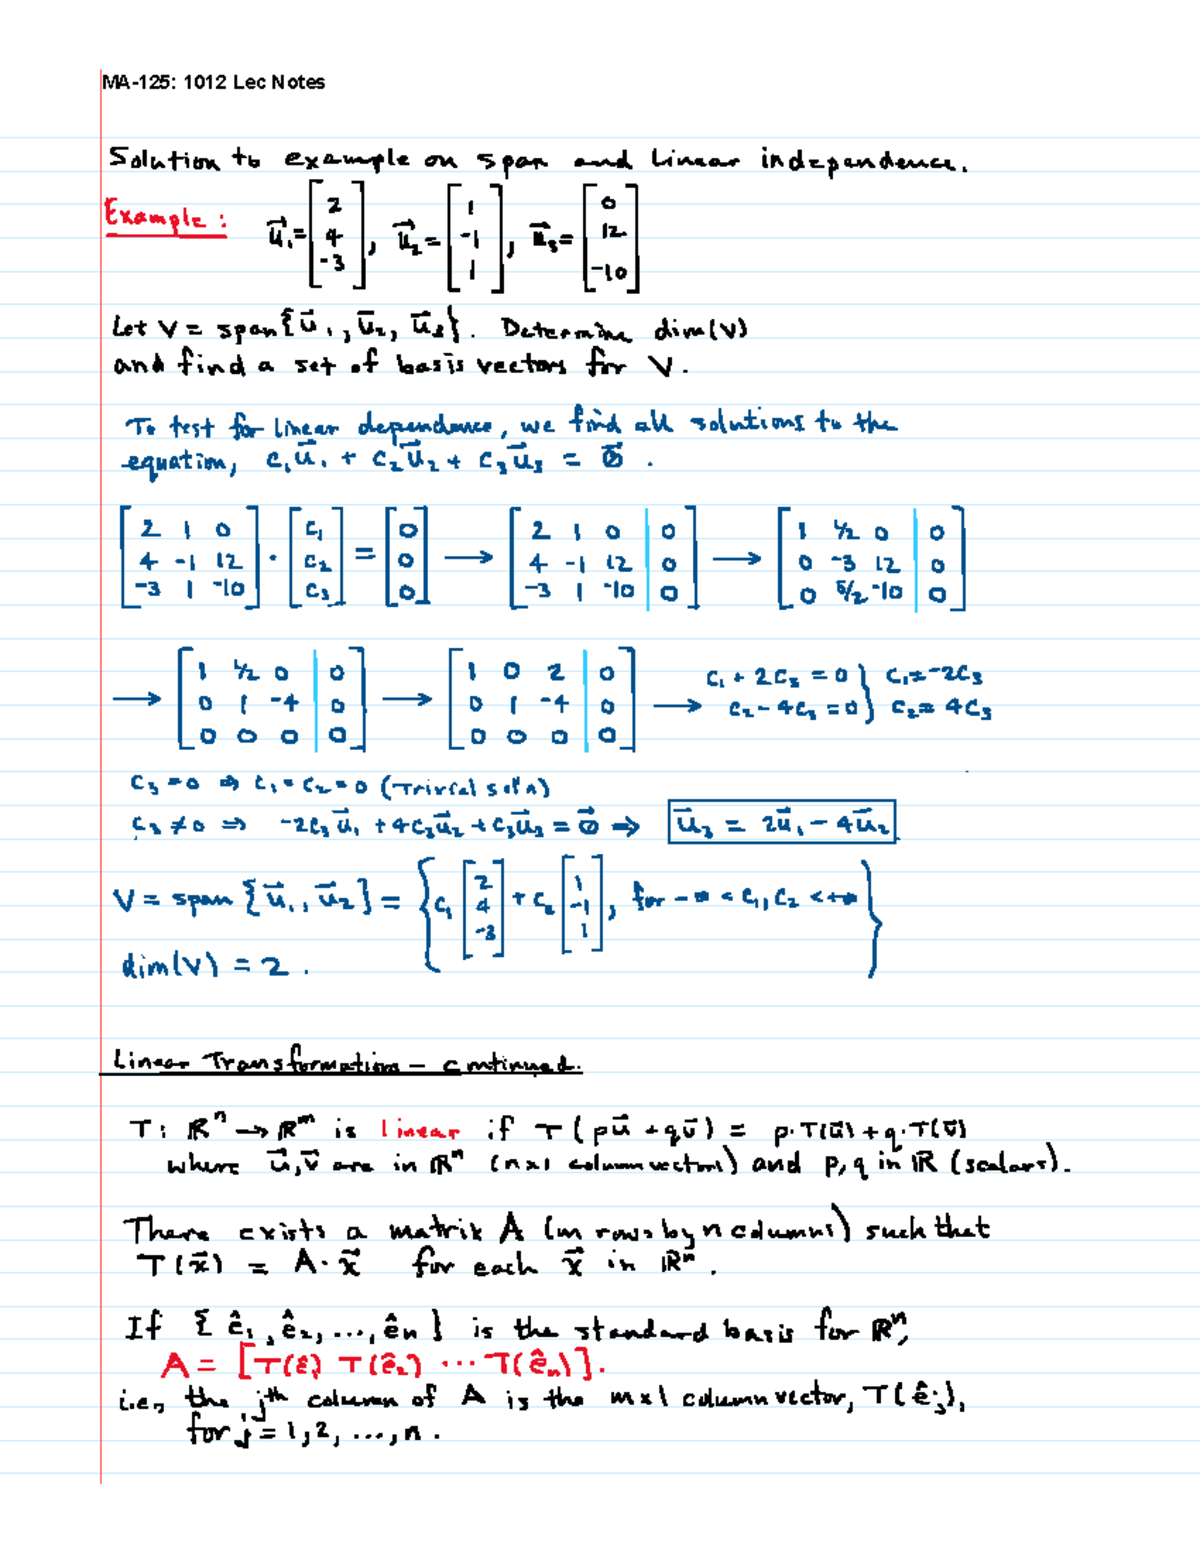 MA-125: 1012 Lec Notes
Solution to example on span and linear independence.
Example: u⃗₁ = [2; 4; -3], u⃗₂ = [1; -1; 1], u⃗₃ = [0; 12; -10]
Let V = span{u⃗₁, u⃗₂, u⃗₃}. Determine dim(V)
and find a set of basis vectors for V.
To test for linear dependence, we find all solutions to the
equation, c₁u⃗₁ + c₂u⃗₂ + c₃u⃗₃ = 0⃗.
[2 1 0; 4 -1 12; -3 1 -10] · [c₁; c₂; c₃] = [0; 0; 0] → [2 1 0 | 0; 4 -1 12 | 0; -3 1 -10 | 0] → [1 1/2 0 | 0; 0 -3 12 | 0; 0 5/2 -10 | 0]
→ [1 1/2 0 | 0; 0 1 -4 | 0; 0 0 0 | 0] → [1 0 2 | 0; 0 1 -4 | 0; 0 0 0 | 0] → c₁ + 2c₃ = 0, c₂ - 4c₃ = 0 } c₁ = -2c₃, c₂ = 4c₃
c₃ = 0 ⇒ c₁ = c₂ = 0 (Trivial sol'n)
c₃ ≠ 0 ⇒ -2c₃u⃗₁ + 4c₃u⃗₂ + c₃u⃗₃ = 0⃗ ⇒ u⃗₃ = 2u⃗₁ - 4u⃗₂
V = span {u⃗₁, u⃗₂} = { c₁[2; 4; -3] + c₂[1; -1; 1], for -∞ < c₁, c₂ < +∞ }
dim(V) = 2.
Linear Transformation - continued.
T: ℝⁿ → ℝᵐ is linear if T(pu⃗ + qv⃗) = p·T(u⃗) + q·T(v⃗)
where u⃗, v⃗ are in ℝⁿ (n×1 column vectors) and p, q in ℝ (scalars).
There exists a matrix A (m rows by n columns) such that
T(x⃗) = A·x⃗ for each x⃗ in ℝⁿ.
If {ê₁, ê₂, ..., ên} is the standard basis for ℝⁿ,
A = [T(ê₁) T(ê₂) ··· T(ên)].
i.e., the jth column of A is the m×1 column vector, T(êj),
for j = 1, 2, ..., n.